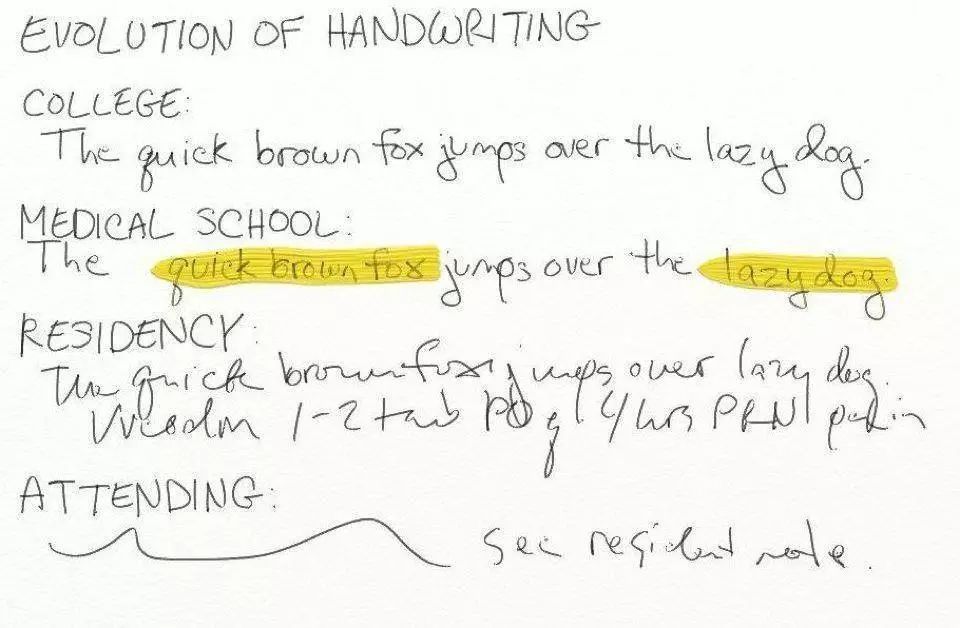 EVOLUTION OF HANDWRITING
COLLEGE:
The quick brown fox jumps over the lazy dog.
MEDICAL SCHOOL:
The quick brown fox jumps over the lazy dog.
RESIDENCY:
The quick brown fox jumps over lazy dog.
Vicodin 1-2 tab PO q 4hrs PRN pain
ATTENDING:
see resident note.